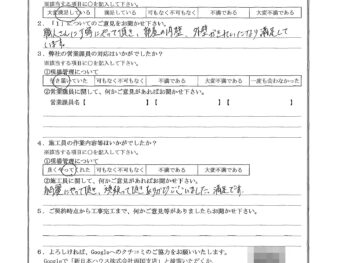 ※該当する項目に○を記入して下さい。
大変満足している 満足している 可もなく不可もなく 不満である 大変不満である
2.「1」についてのご意見をお聞かせ下さい。
職人さんは丁寧にやって頂き、 外壁がきれいになり満足して
います。
3.弊社の営業課員の対応はいかがでしたか?
※該当する項目に○を記入して下さい。
①現場管理について
行き届いていた 可もなく不可もなく 不満である 大変不満である 一度も会わなかった
②営業課員に関して、何かご意見があればお聞かせ下さい。
営業課員名【 】
4.施工員の作業内容等はいかがでしたか?
※該当する項目に○を記入して下さい。
①現場管理について
良くやってくれた 可もなく不可もなく 不満である 大変不満である
②施工員に関して、何かご意見があればお聞かせ下さい。
綺麗にやって頂き、頑張って頂きありがとうございました。満足です。
5.ご契約時点から工事完工まで、何かご意見等がありましたらお聞かせ下さい。
6.よろしければ、Googleへのクチコミのご協力をお願いいたします。
Googleで「新日本ハウス株式会社